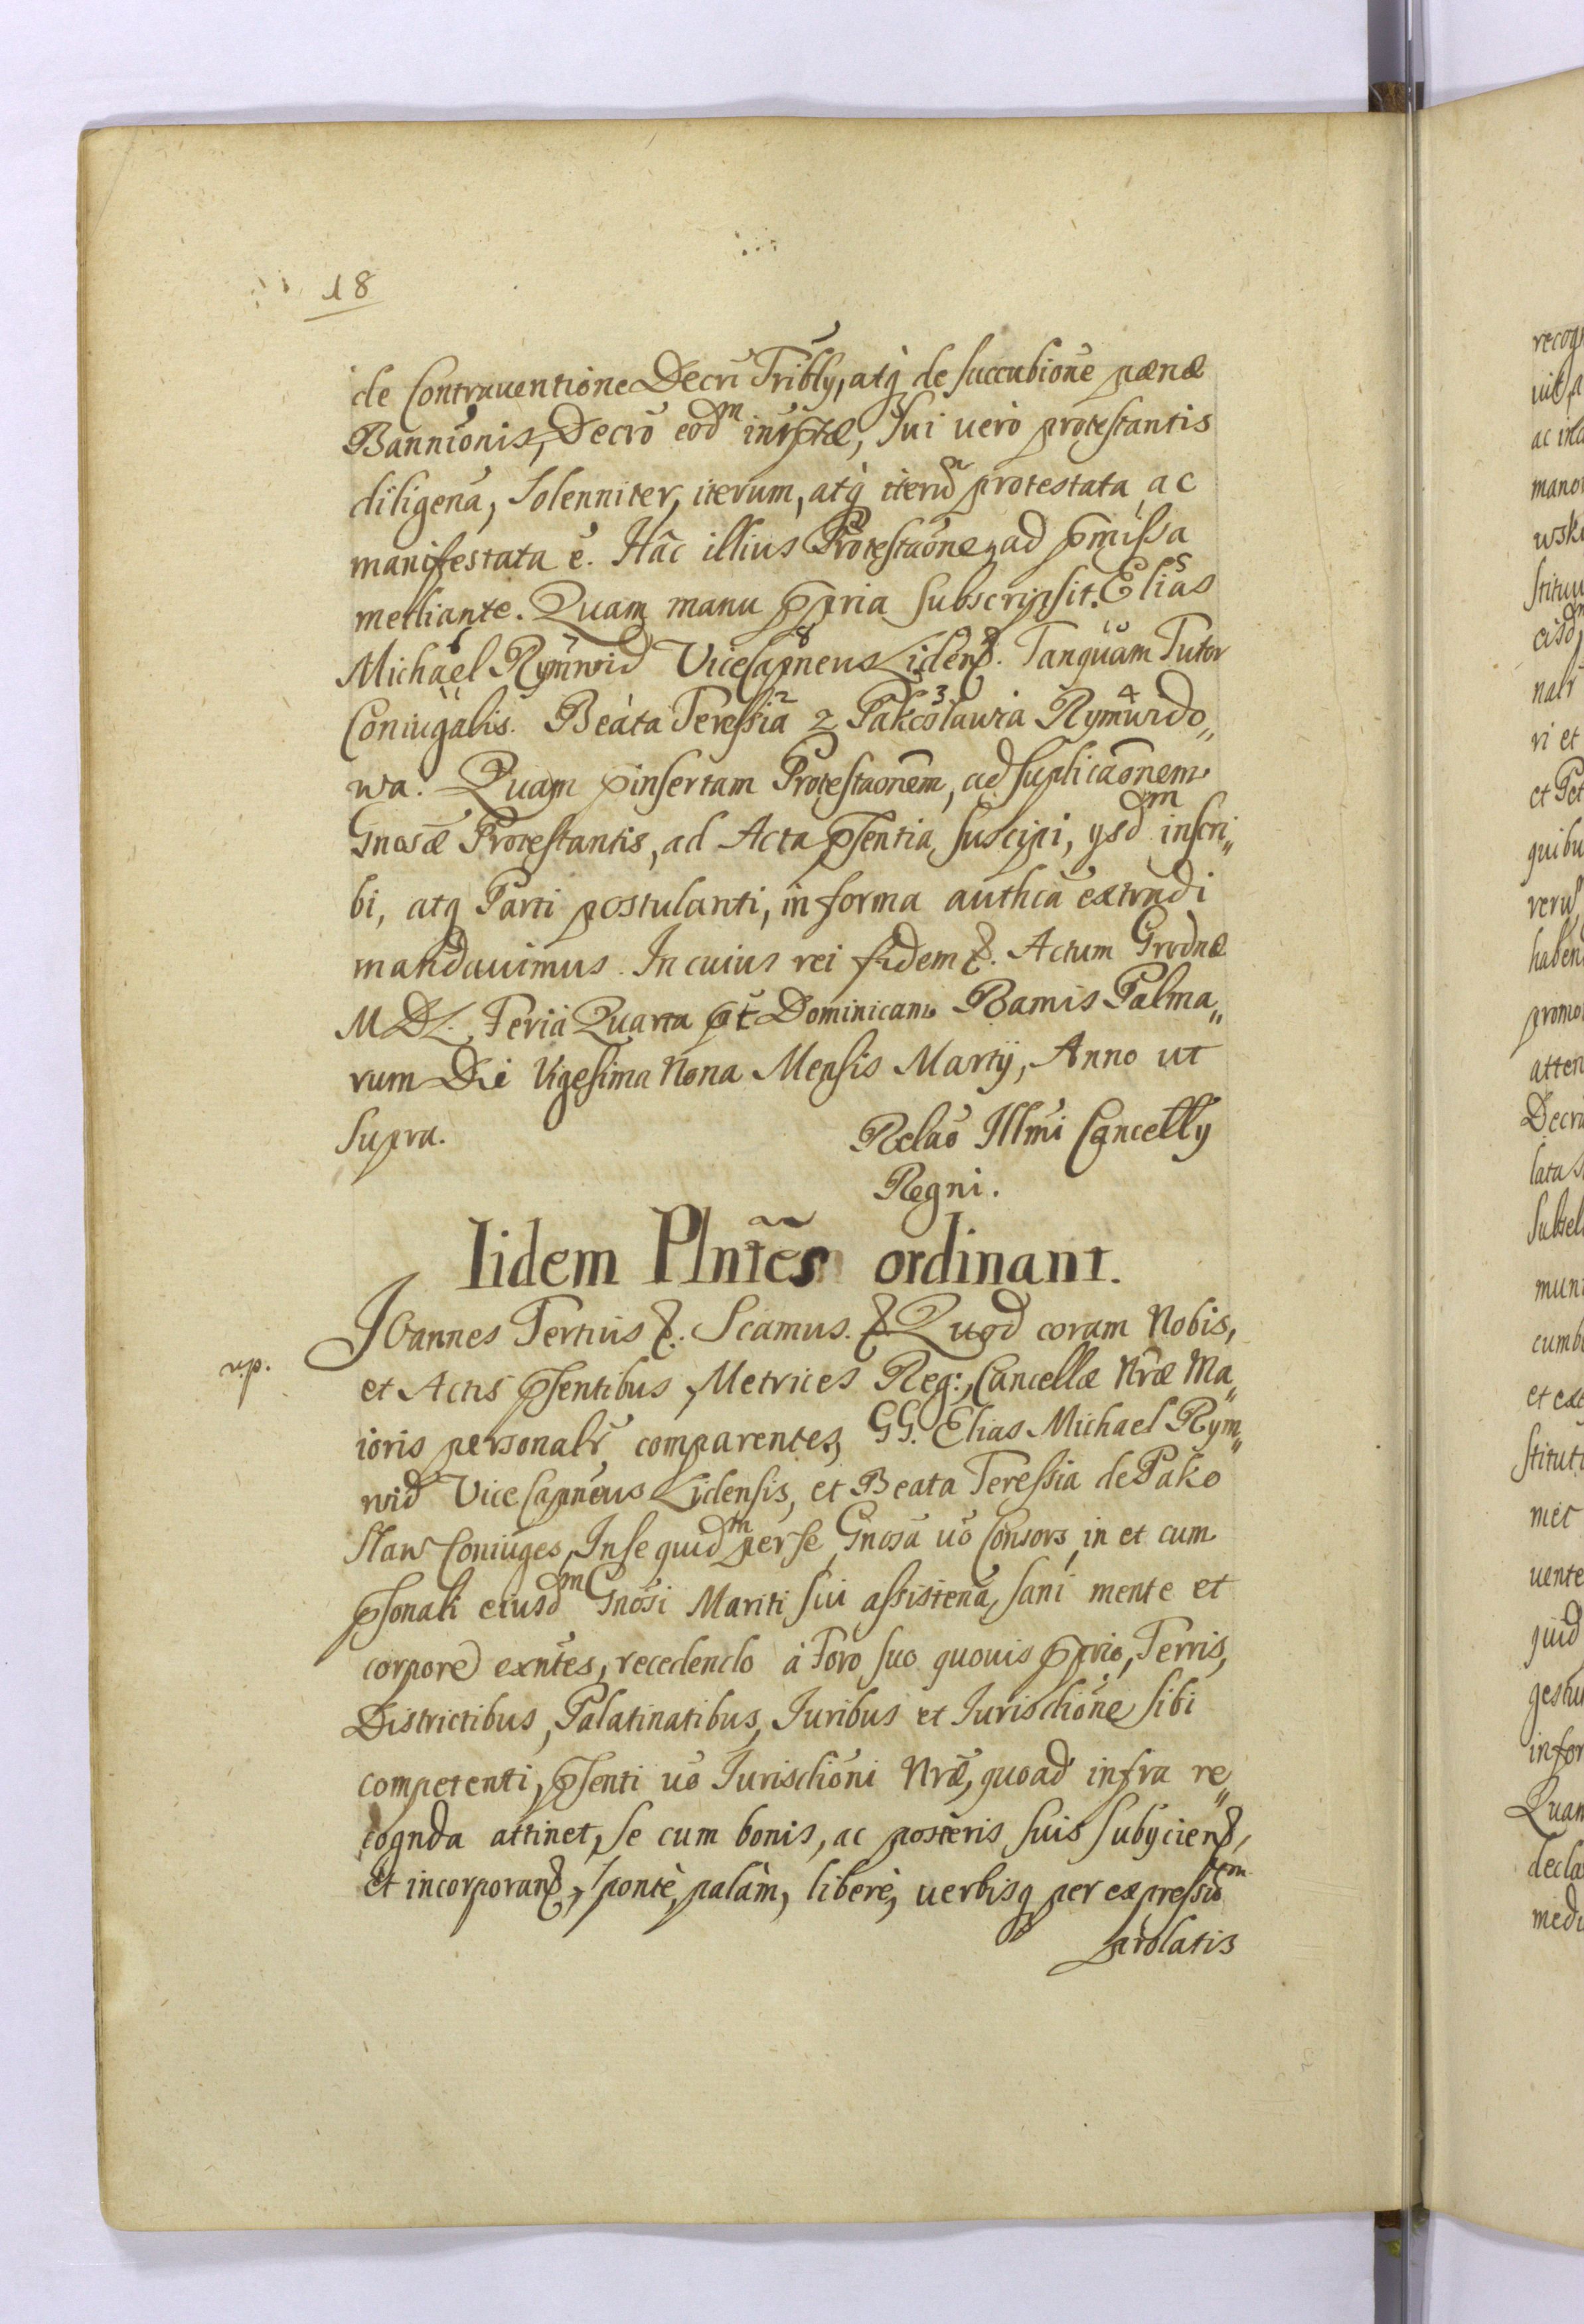 18
de Contrauentione Decrī Tribly, atq̀ de succubione pænæ
Bannionis, Decrō eodm insptæ, Sui uerò protestantis
diligena, Solenniter, iterum, atq̀ iterū protestata ac
manifestata ē. Hāc illius Protestaōne, ad p̄missa
mediante. Quam manu p̄pria subscripsit. Elias 5
Michael 6 Rymwid 7 ViceCapneus 8 Lidenß 9. Tanquam 10 Tutor
Coniugalis 11. Beata Teressia 2 z Pakcoslawia 3 Rymwido„ 4
wa. Quam p̄insertam Protestaonem, ad suplicaonem
Gnosæ Protestantis, ad Acta p̄sentia, suscipi, ysdm inscri„
bi, atq Parti postulanti, in forma authca extradi
mandauimus. In cuius rei fidem &. Actum Grodnæ
MDL. Feria Quarta pt Dominicam Ramis Palma„
rum Die Vigesima Nona Mensis Martÿ, Anno ut
supra.
Relaō Illmi Cancelly
Regni.
Iidem Plntēs ordinant.
Joannes Tertius &. Scamus. & Quod coram Nobis,
et Actis p̄sentibus, Metrices Reg:, Cancellæ Nræ Ma„
ioris personalr̄, comparentes, GG. Elias Michael Rym„
wid ViceCapneus Lidensis, et Beata Teressia de Pako
Slaw Coniuges, Inse quidm perse, Gnosa uō Consors, in et cum
p̄sonali eiusdm Gnosi Mariti sui assistena, sani mente et
corpore exntes, recedendo à Foro suo quouis p̄prio, Terris,
Districtibus, Palatinatibus, Iuribus et Iurisdione sibi
competenti, p̄senti uō Iurisdioni Nræ, quoad infra re„
cognda attinet, se cum bonis, ac posteris suis subÿcienß,
et incorporanß, spontè, palàm, liberè, uerbisq per expressum
prolatis
n.p.